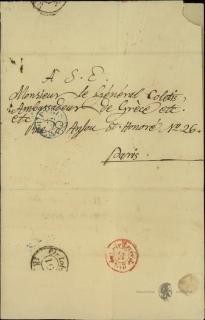 A S. E.
Monsieur le Général Coletis
Ambassadeur de Grèce etc
etc
Rue d'Anjou St Honoré No 26.
Paris.